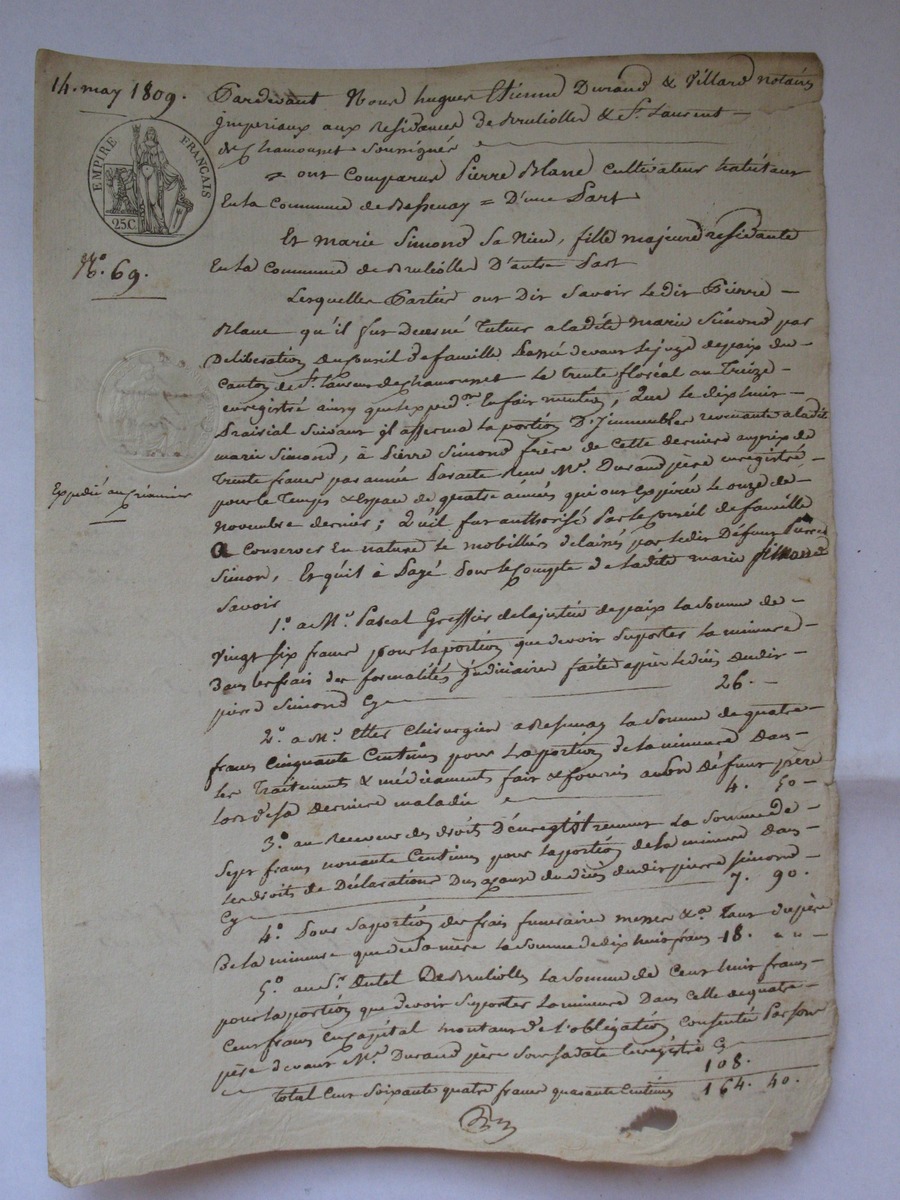 14. may 1809.
Pardevant Nous hugues Etienne Durand & Villard notaires
jmperiaux aux residances de Brulioles & St. Laurent
de Chamousset soussignés
EMPIRE FRANÇAIS
25C
= ont Comparus Pierre Blanc cultivateur habitant
En la Commune de Bessenay = D'une Part
Et marie Simond Sa Niece, fille majeure residante
N.o 69.
En la Commune de Bruliolles D'autre Part
Lesquelles Parties ont Dit Savoir le dit Pierre
Blanc qu'il fut Decerné Tuteur a ladite marie Simond par
Deliberation du Conseil de famille Passé devant le juge de paix du
canton de St. Laurent de Chamousset le trente floréal an Treize
enregistré ainsy que l'expedon. En fait mention, Que le dix huit
Prairial suivant il afferma la portion D'jmmeubles revenante a ladite
marie Simond, à Pierre Simond frère de cette derniere au prix de
trente francs par année Par acte reçu Me. Durand père enregistré
Expedié au premier
pour le Temps & Espace de quatre années qui ont expirée le onze
novembre dernier; Qu'il fut authorisé Par le Conseil de famille
a Conserver En nature le mobillier delaissé par ledit Défunt Pierre
Simon, Et qu'il à Payé Pour le Compte de ladite marie Simond
Savoir
1.o a Mr. Pascal Greffier de la justice de paix la Somme de
vingt six francs pour la portion que devoit Suporter la mineure
Dans les frais des formalités judiciaires faite après le décès dudit
pierre Simond Cy 26. –
2.o a Mr. Etter Chirurgien a Bessenay la Somme de quatre
francs Cinquante Centimes pour la portion de la mineure Dans
les Traitements & médicaments fait & fournis audit Défunt père
lors de sa Derniere maladie 4. 50 –
3.o au receveur des droits D'enregistrement la Somme de
Sept francs nonante Centimes pour la portion de la mineure Dans
les droits de Déclaration Dus a cause du décès dudit pierre Simond
Cy 7. 90.
4.o Pour Sa portion des frais funeraires messes &a. Tant du père
de la mineure que de Sa mère la Somme de dix huit francs 18. " " –
5.o au Sr. Dutel De Bruliolles la Somme de Cent huit francs
pour la portion que devoit Suporter la mineure Dans Celle de quatre
Cent francs en Capital montant de l'obligation Consentie Par son
père devant Me. Durand père Sous Sa date Enregistré Cy
108.
Total Cent Soixante quatre francs quarante Centimes 164. 40.